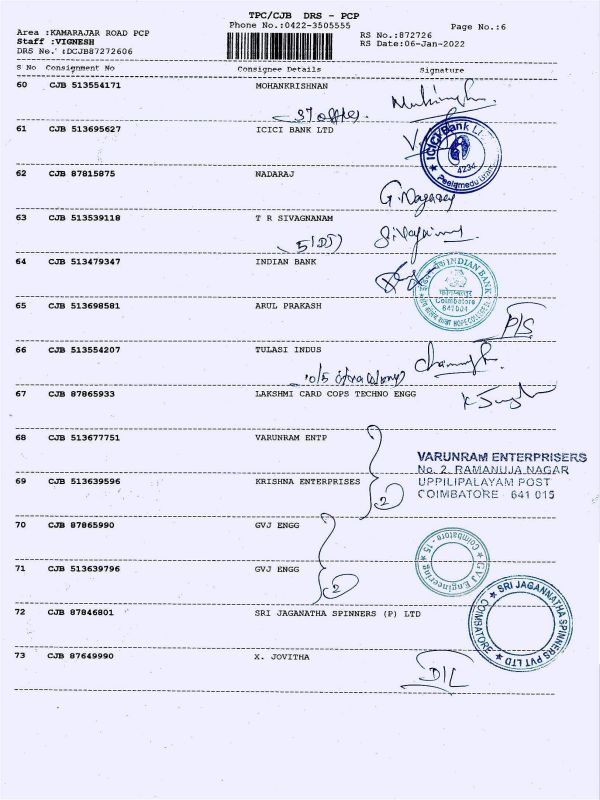 TPC/CJB DRS - PCP
Phone No.:0422-3505555
Page No.:6
Area :KAMARAJAR ROAD PCP
RS No.:872726
Staff :VIGNESH
RS Date:06-Jan-2022
DRS No.:DCJB87272606
S No Consignment No Consignee Details Signature
60 CJB 513554171 MOHANKRISHNAN
61 CJB 513695627 ICICI BANK LTD
ICICI Bank
4234
62 CJB 87815875 NADARAJ
G. Nagaraj
63 CJB 513539118 T R SIVAGNANAM
64 CJB 513479347 INDIAN BANK
INDIAN BANK
कोयम्बत्तूर
Coimbatore
641004
HOPE COLLEGE
65 CJB 513698581 ARUL PRAKASH
P/S
66 CJB 513554207 TULASI INDUS
67 CJB 87865933 LAKSHMI CARD COPS TECHNO ENGG
68 CJB 513677751 VARUNRAM ENTP
VARUNRAM ENTERPRISERS
No. 2. RAMANUJA NAGAR
69 CJB 513639596 KRISHNA ENTERPRISES
2
UPPILIPALAYAM POST
COIMBATORE - 641 015
70 CJB 87865990 GVJ ENGG
GVJ Engineering
Coimbatore - 15
71 CJB 513639796 GVJ ENGG
2
72 CJB 87846801 SRI JAGANATHA SPINNERS (P) LTD
SRI JAGANNATHA SPINNERS PVT LTD
COIMBATORE
73 CJB 87649990 X. JOVITHA
D/L